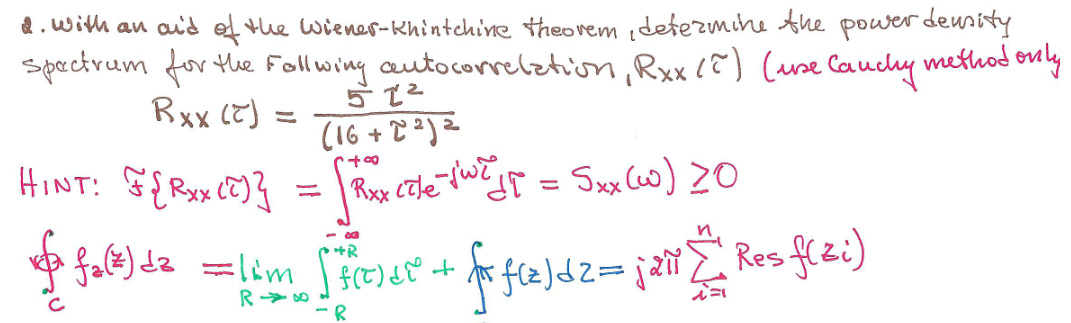 2. With an aid of the Wiener-Khintchine theorem, determine the power density
spectrum for the Follwing autocorreletion, Rxx (τ) (use Cauchy method only
Rxx (τ) = 5 τ² / (16 + τ²)²
HINT: F{Rxx(τ)} = ∫_{-∞}^{+∞} Rxx(τ)e^{-jωτ}dτ = Sxx(ω) ≥0
∮_C f₂(z) dz = lim_{R→∞} ∫_{-R}^{+R} f(τ) dτ + ∮ f(z)dz = j2π ∑_{i=1}^{n} Res f(zi)